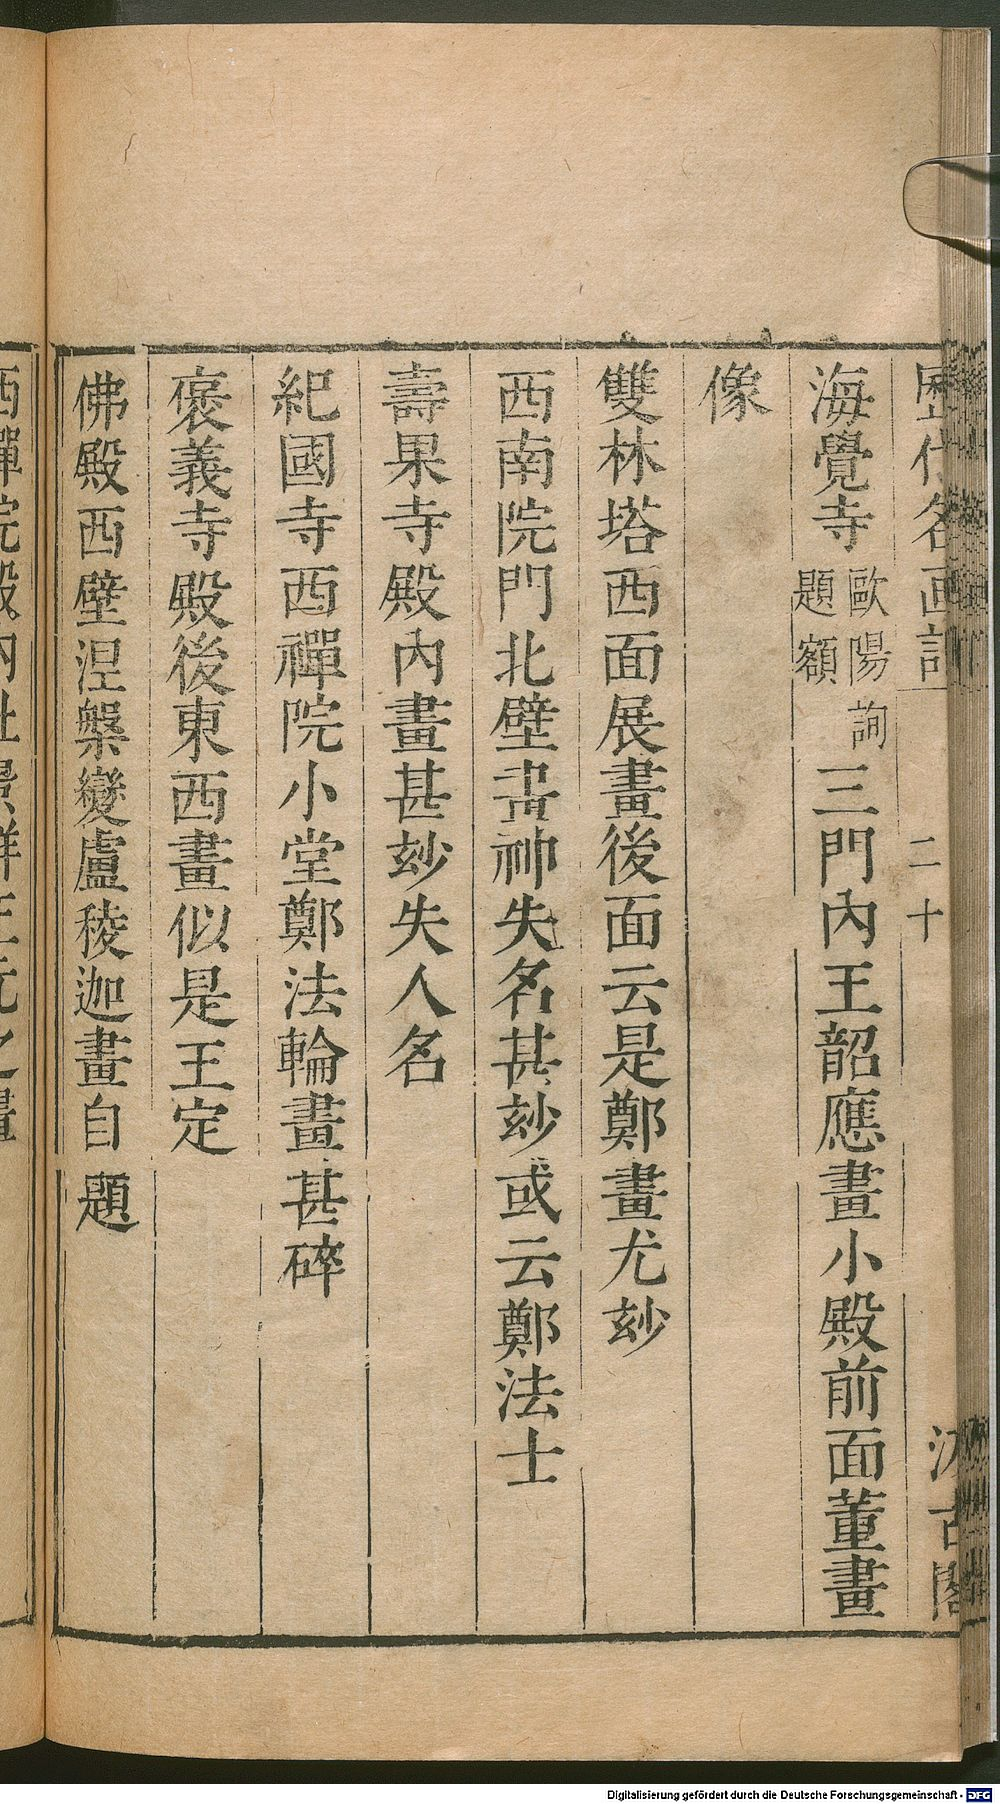 歷代名画記
二十
汲古閣
海覺寺
歐陽詢
題額
三門內王韶應畫小殿前面董畫
像
雙林塔西面展畫後面云是鄭畫尤玅
西南院門北壁畫神失名甚玅或云鄭法士
壽果寺殿內畫甚玅失人名
紀國寺西禪院小堂鄭法輪畫甚碎
褒義寺殿後東西畫似是王定
佛殿西壁涅槃變盧稜迦畫自題
西禪院殿內
Digitalisierung gefördert durch die Deutsche Forschungsgemeinschaft - DFG